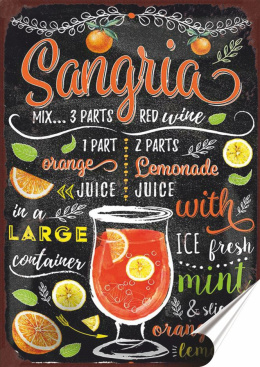 Sangria
MIX... 3 PARTS RED wine
1 PART 2 PARTS
orange Lemonade
JUICE JUICE
in a
LARGE
container
with
ICE fresh
mint